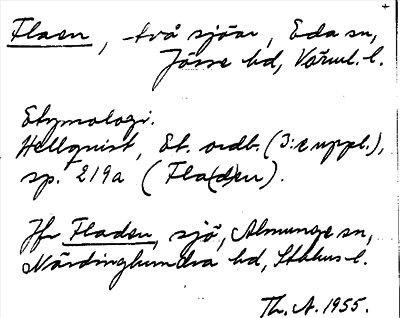 Flaen, två sjöar, Eda sn,
Jösse hd, Värml. l.
Etymologi.
Hellquist, Et. ordb. (3:e uppl.),
sp. 219a (Fla(d)en).
Jfr Fladen, sjö, Almunge sn,
Närdinghundra hd, Sthlms l.
Th. A. 1955.